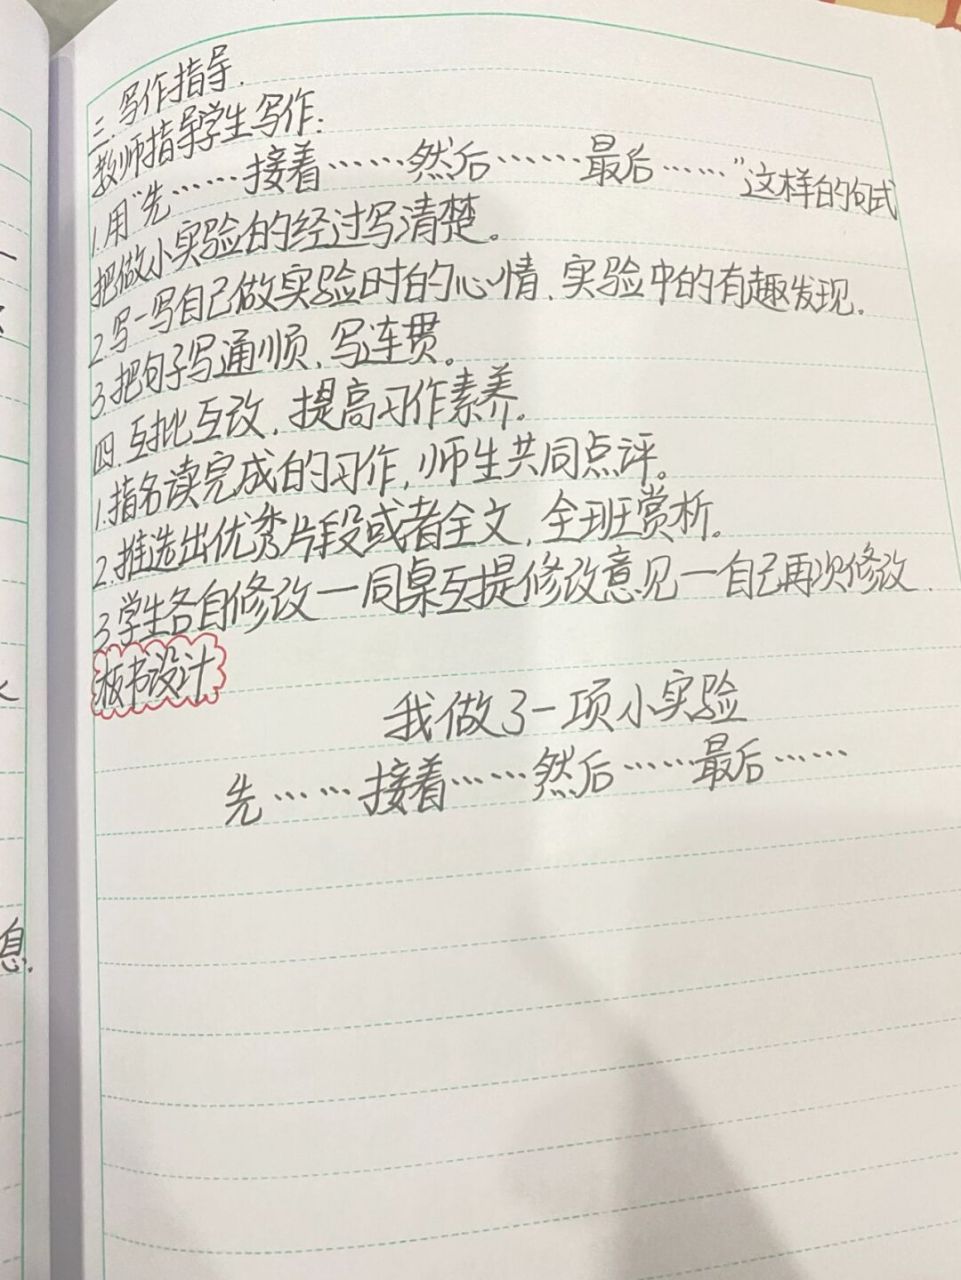 三.写作指导.
教师指导学生写作:
1.用“先……接着……然后……最后……”这样的句式
把做小实验的经过写清楚。
2.写一写自己做实验时的心情、实验中的有趣发现.
3.把句子写通顺、写连贯。
四.互批互改,提高习作素养.
1.指名读完成的习作,师生共同点评。
2.推选出优秀片段或者全文,全班赏析.
3.学生各自修改一同桌互提修改意见一自己再次修改.
板书设计
我做了一项小实验
先……接着……然后……最后……
息.